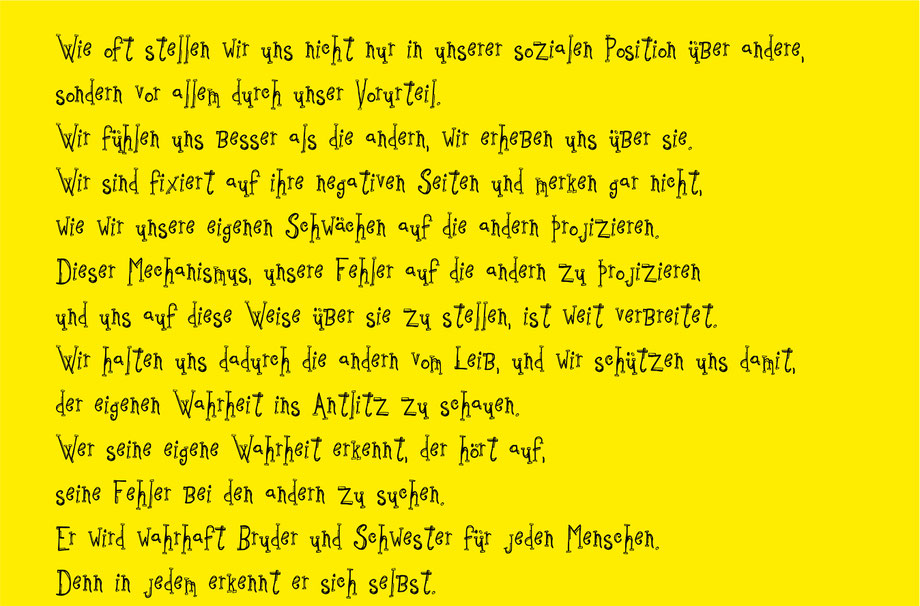 Wie oft stellen wir uns nicht nur in unserer sozialen Position über andere,
sondern vor allem durch unser Vorurteil.
Wir fühlen uns besser als die andern, wir erheben uns über sie.
Wir sind fixiert auf ihre negativen Seiten und merken gar nicht,
wie wir unsere eigenen Schwächen auf die andern projizieren.
Dieser Mechanismus, unsere Fehler auf die andern zu projizieren
und uns auf diese Weise über sie zu stellen, ist weit verbreitet.
Wir halten uns dadurch die andern vom Leib, und wir schützen uns damit,
der eigenen Wahrheit ins Antlitz zu schauen.
Wer seine eigene Wahrheit erkennt, der hört auf,
seine Fehler bei den andern zu suchen.
Er wird wahrhaft Bruder und Schwester für jeden Menschen.
Denn in jedem erkennt er sich selbst.